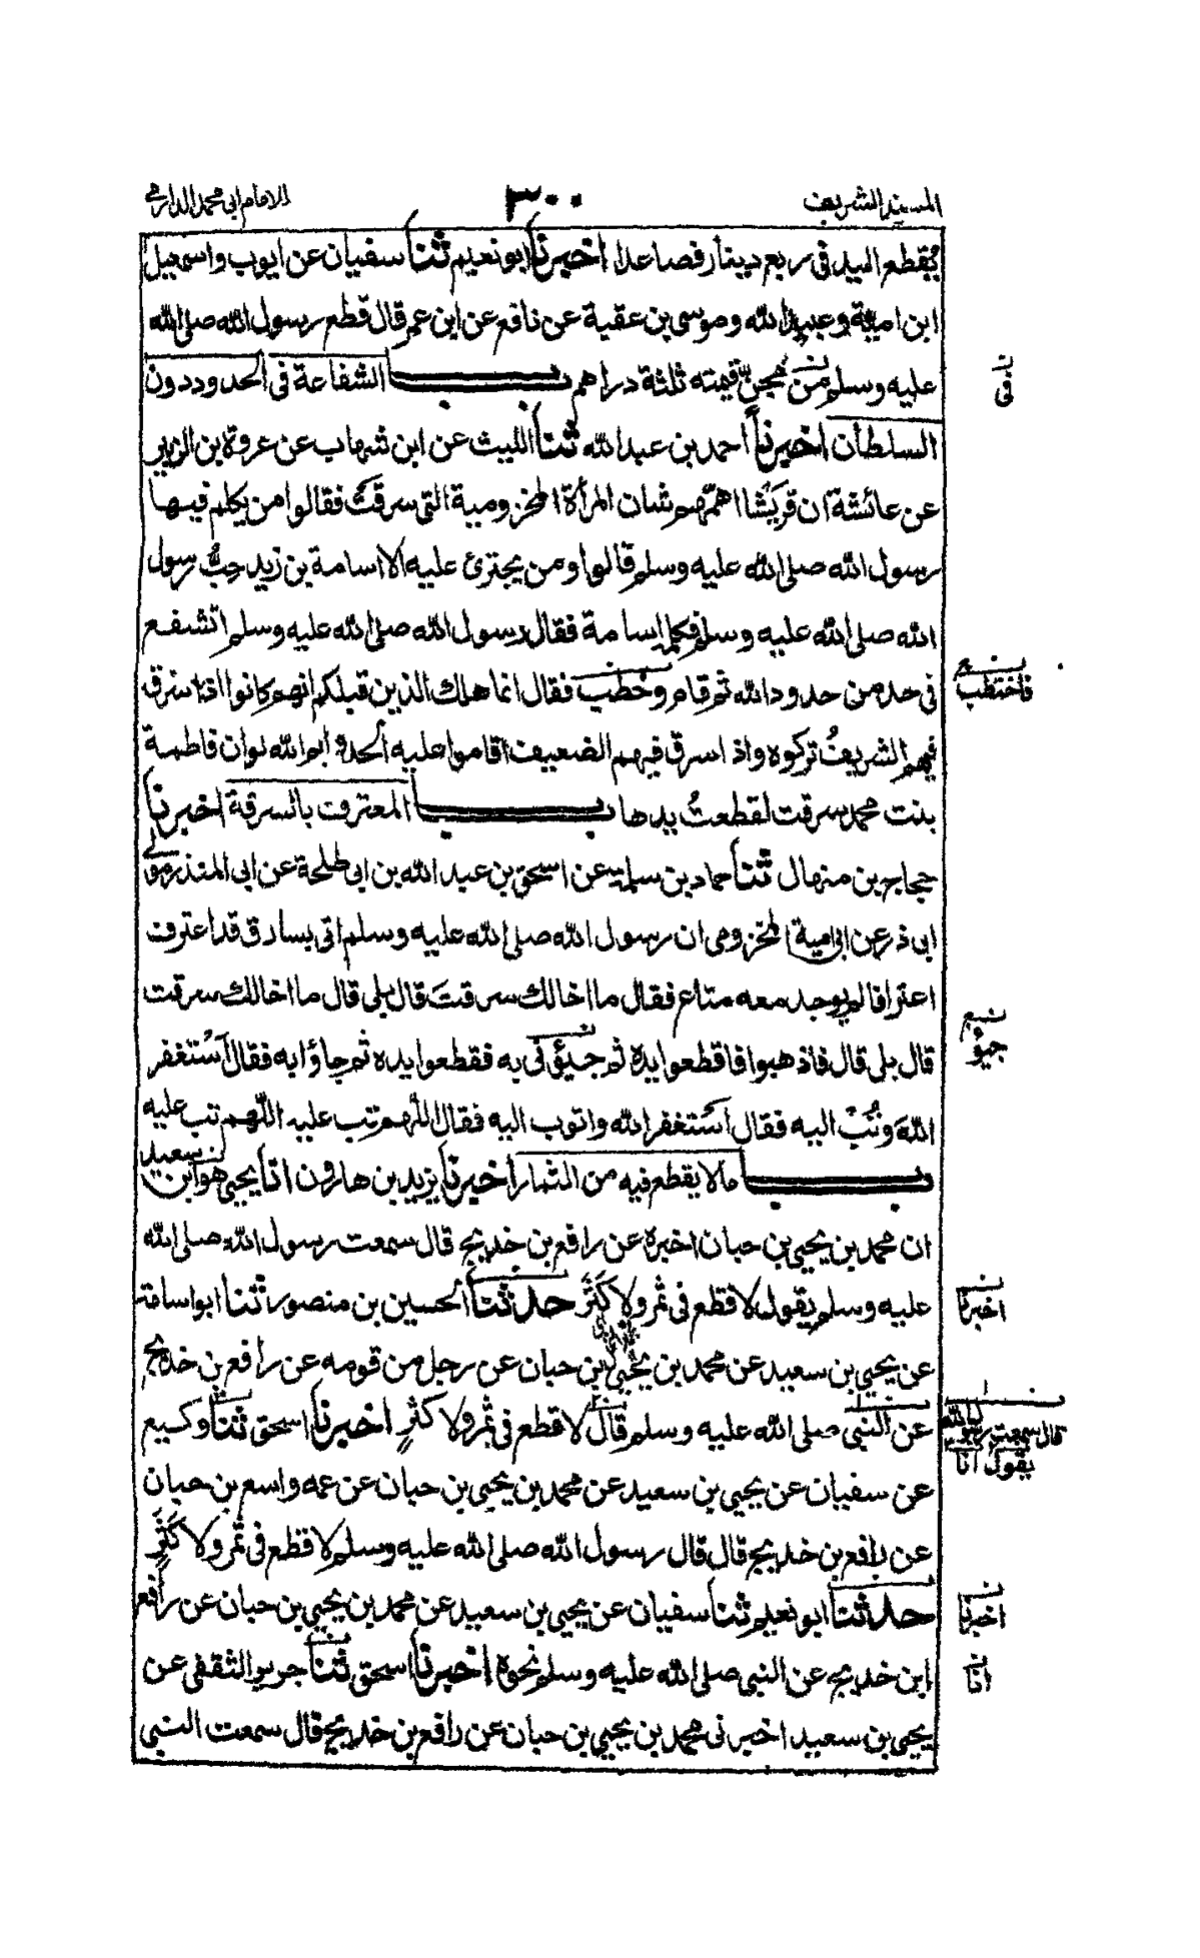 المسند الشريف
٣٠٠
الامام ابی محمد الدارمی
يُقطع اليد فی ربع دينار فصاعدا اخبرنا ابو نعيم ثنا سفيان عن ايوب واسمعيل
ابن امية وعبيد الله وموسی بن عقبة عن نافع عن ابن عمر قال قطع رسول الله صلی الله
عليه وسلم من مجنّ قيمته ثلثة دراهم بــــاب الشفاعة فی الحدود دون
السلطان اخبرنا احمد بن عبد الله ثنا الليث عن ابن شهاب عن عروة بن الزبير
عن عائشة ان قريشا اهمّهم شان المرأة المخزومية التی سرقت فقالوا من يكلم فيها
رسول الله صلی الله عليه وسلم قالوا ومن يجترئ عليه الا اسامة بن زيد حِبُّ رسول
الله صلی الله عليه وسلم فكلمه اسامة فقال رسول الله صلی الله عليه وسلم اتشفع
فی حد من حدود الله ثم قام وخطب فقال انما هلك الذين قبلكم انهم كانوا اذا سرق
فيهم الشريفُ تركوه واذا سرق فيهم الضعيف اقاموا عليه الحد وايم الله لو ان فاطمة
بنت محمد سرقت لقطعتُ يدها بــــاب المعترف بالسرقة اخبرنا
حجاج بن منهال ثنا حماد بن سلمة عن اسحق بن عبد الله بن ابی طلحة عن ابی المنذر مولی
ابی ذر عن ابی امية المخزومی ان رسول الله صلی الله عليه وسلم اتی بسارق قد اعترف
اعترافا لم يوجد معه متاع فقال ما اخالك سرقتَ قال بلی قال ما اخالك سرقت
قال بلی قال فاذهبوا فاقطعوا يده ثم جيؤنی به فقطعوا يده ثم جاؤا به فقال اَسْتغفر
اللهَ وتُبْ اليه فقال اَسْتغفر الله واتوب اليه فقال اللّٰهم تب عليه اللّٰهم تب عليه
بــــاب ما لا يقطع فيه من الثمار اخبرنا يزيد بن هارون انا يحيی هو ابن سعيد
ان محمد بن يحيی بن حبان اخبره عن رافع بن خديج قال سمعت رسول الله صلی الله
عليه وسلم يقول لا قطع فی ثمر ولا كَثَر حدثنا الحسين بن منصور ثنا ابو اسامة
عن يحيی بن سعيد عن محمد بن يحيی بن حبان عن رجل من قومه عن رافع بن خديج
عن النبی صلی الله عليه وسلم قال لا قطع فی ثمر ولا كثرٍ اخبرنا اسحق ثنا وكيع
عن سفيان عن يحيی بن سعيد عن محمد بن يحيی بن حبان عن عمه واسع بن حبان
عن رافع بن خديج قال قال رسول الله صلی الله عليه وسلم لا قطع فی ثمر ولا كَثَرٍ
حدثنا ابو نعيم ثنا سفيان عن يحيی بن سعيد عن محمد بن يحيی بن حبان عن رافع
ابن خديج عن النبی صلی الله عليه وسلم نحوه اخبرنا اسحق ثنا جرير الثقفی عن
يحيی بن سعيد اخبرنی محمد بن يحيی بن حبان عن رافع بن خديج قال سمعت النبی
فی
فاختطب
جيؤ
اخبرنا
قال سمعت رسول الله
يقول انا
اخبرنا
انا